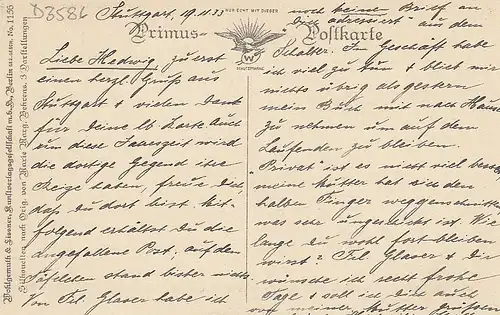 D3586
Stuttgart, 19.11.33
NUR ECHT MIT DIESER
Primus-Postkarte
SCHUTZMARKE
W
Wohlgemuth & Lissner, Kunstverlagsgesellschaft m.b.H., Berlin No. 1156
Silhouetten nach Orig. von Marie Marg. Behrens. 3 Darstellungen
Liebe Hedwig, zuerst
einen herzl. Gruß aus
Stuttgart & vielen Dank
für Deine lb. Karte. Auch
um diese Jareszeit wird
die dortge Gegend ihre
Reize haben, freue Dich,
daß Du dort bist. Mit-
folgend erhältst Du die
angefallene Post, auf den
Täfelchen stand bisher nichts.
Von Frl. Glaser habe ich
noch keine Brief an
Dich adressiert aus dem
Schalter. Im Geschäft habe
ich viel zu tun & blieb mir
nichts übrig als gestern
mein Buch mit nach Hause
zu nehmen um auf dem
Laufenden zu bleiben.
"Privat" ist es nicht viel besser
meine Mutter hat sich den
halben Finger weggeschnitten
was sehr ungeschickt ist. Wie
lange Du wohl fort bleiben
wirst? Frl. Glaser & Dir
wünsche ich recht frohe
Tage & soll ich Dich auch
von meiner Mutter grüßen